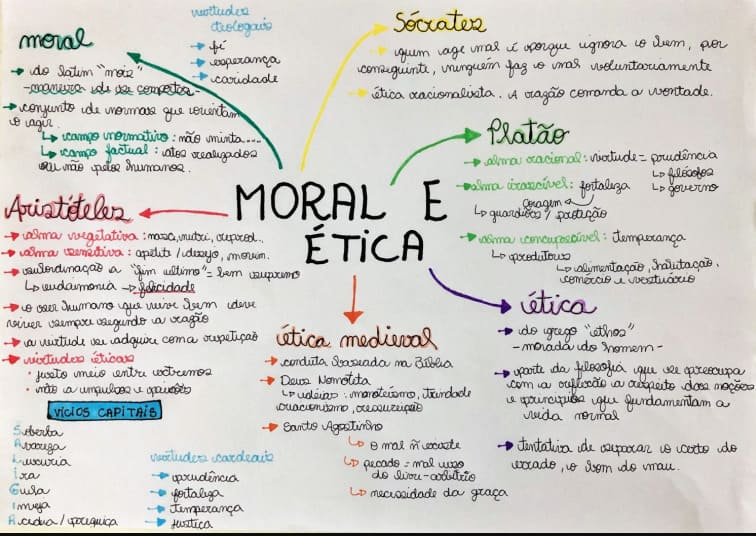 MORAL E
ÉTICA
moral
do latim "mois"
- maneira de se comportar -
conjunto de normas que orientam
o agir
campo normativo: não minta....
campo factual: atos realizados
ou não pelos humanos.
virtudes
teologais
fé
esperança
caridade
Sócrates
quem age mal é porque ignora o bem, por
conseguinte, ninguém faz o mal voluntariamente
ética racionalista. A razão comanda a vontade.
Platão
alma racional: virtude = prudência
filósofos
governo
alma irascível: fortaleza
coragem
guardiões / proteção
alma concupiscível: temperança
produtores
alimentação, habitação,
comércio e vestuário
ética
do grego "ethos"
- morada do homem -
parte da filosofia que se preocupa
com a reflexão a respeito das noções
e princípios que fundamentam a
vida normal
tentativa de separar o certo do
errado, o bom do mau.
Aristóteles
alma vegetativa: nasc, nutri, reprod..
alma sensitiva: apetite / desejo, movim.
subordinação a "fim último" = bem supremo
eudaimonia → felicidade
o ser humano que vive bem deve
viver sempre segundo a razão
a virtude se adquire com a repetição
virtudes éticas
justo meio entre extremos
não a impulsos e paixões
VÍCIOS CAPITAIS
Soberba
Avareza
Luxúria
Ira
Gula
Inveja
Acídia / preguiça
virtudes cardeais
prudência
fortaleza
temperança
justiça
ética medieval
conduta baseada na Bíblia
Deus Nomoteta
ideias: monoteísmo, trindade
criacionismo, ressurreição
Santo Agostinho
o mal ñ existe
pecado = mal uso
do livre-arbítrio
necessidade da graça